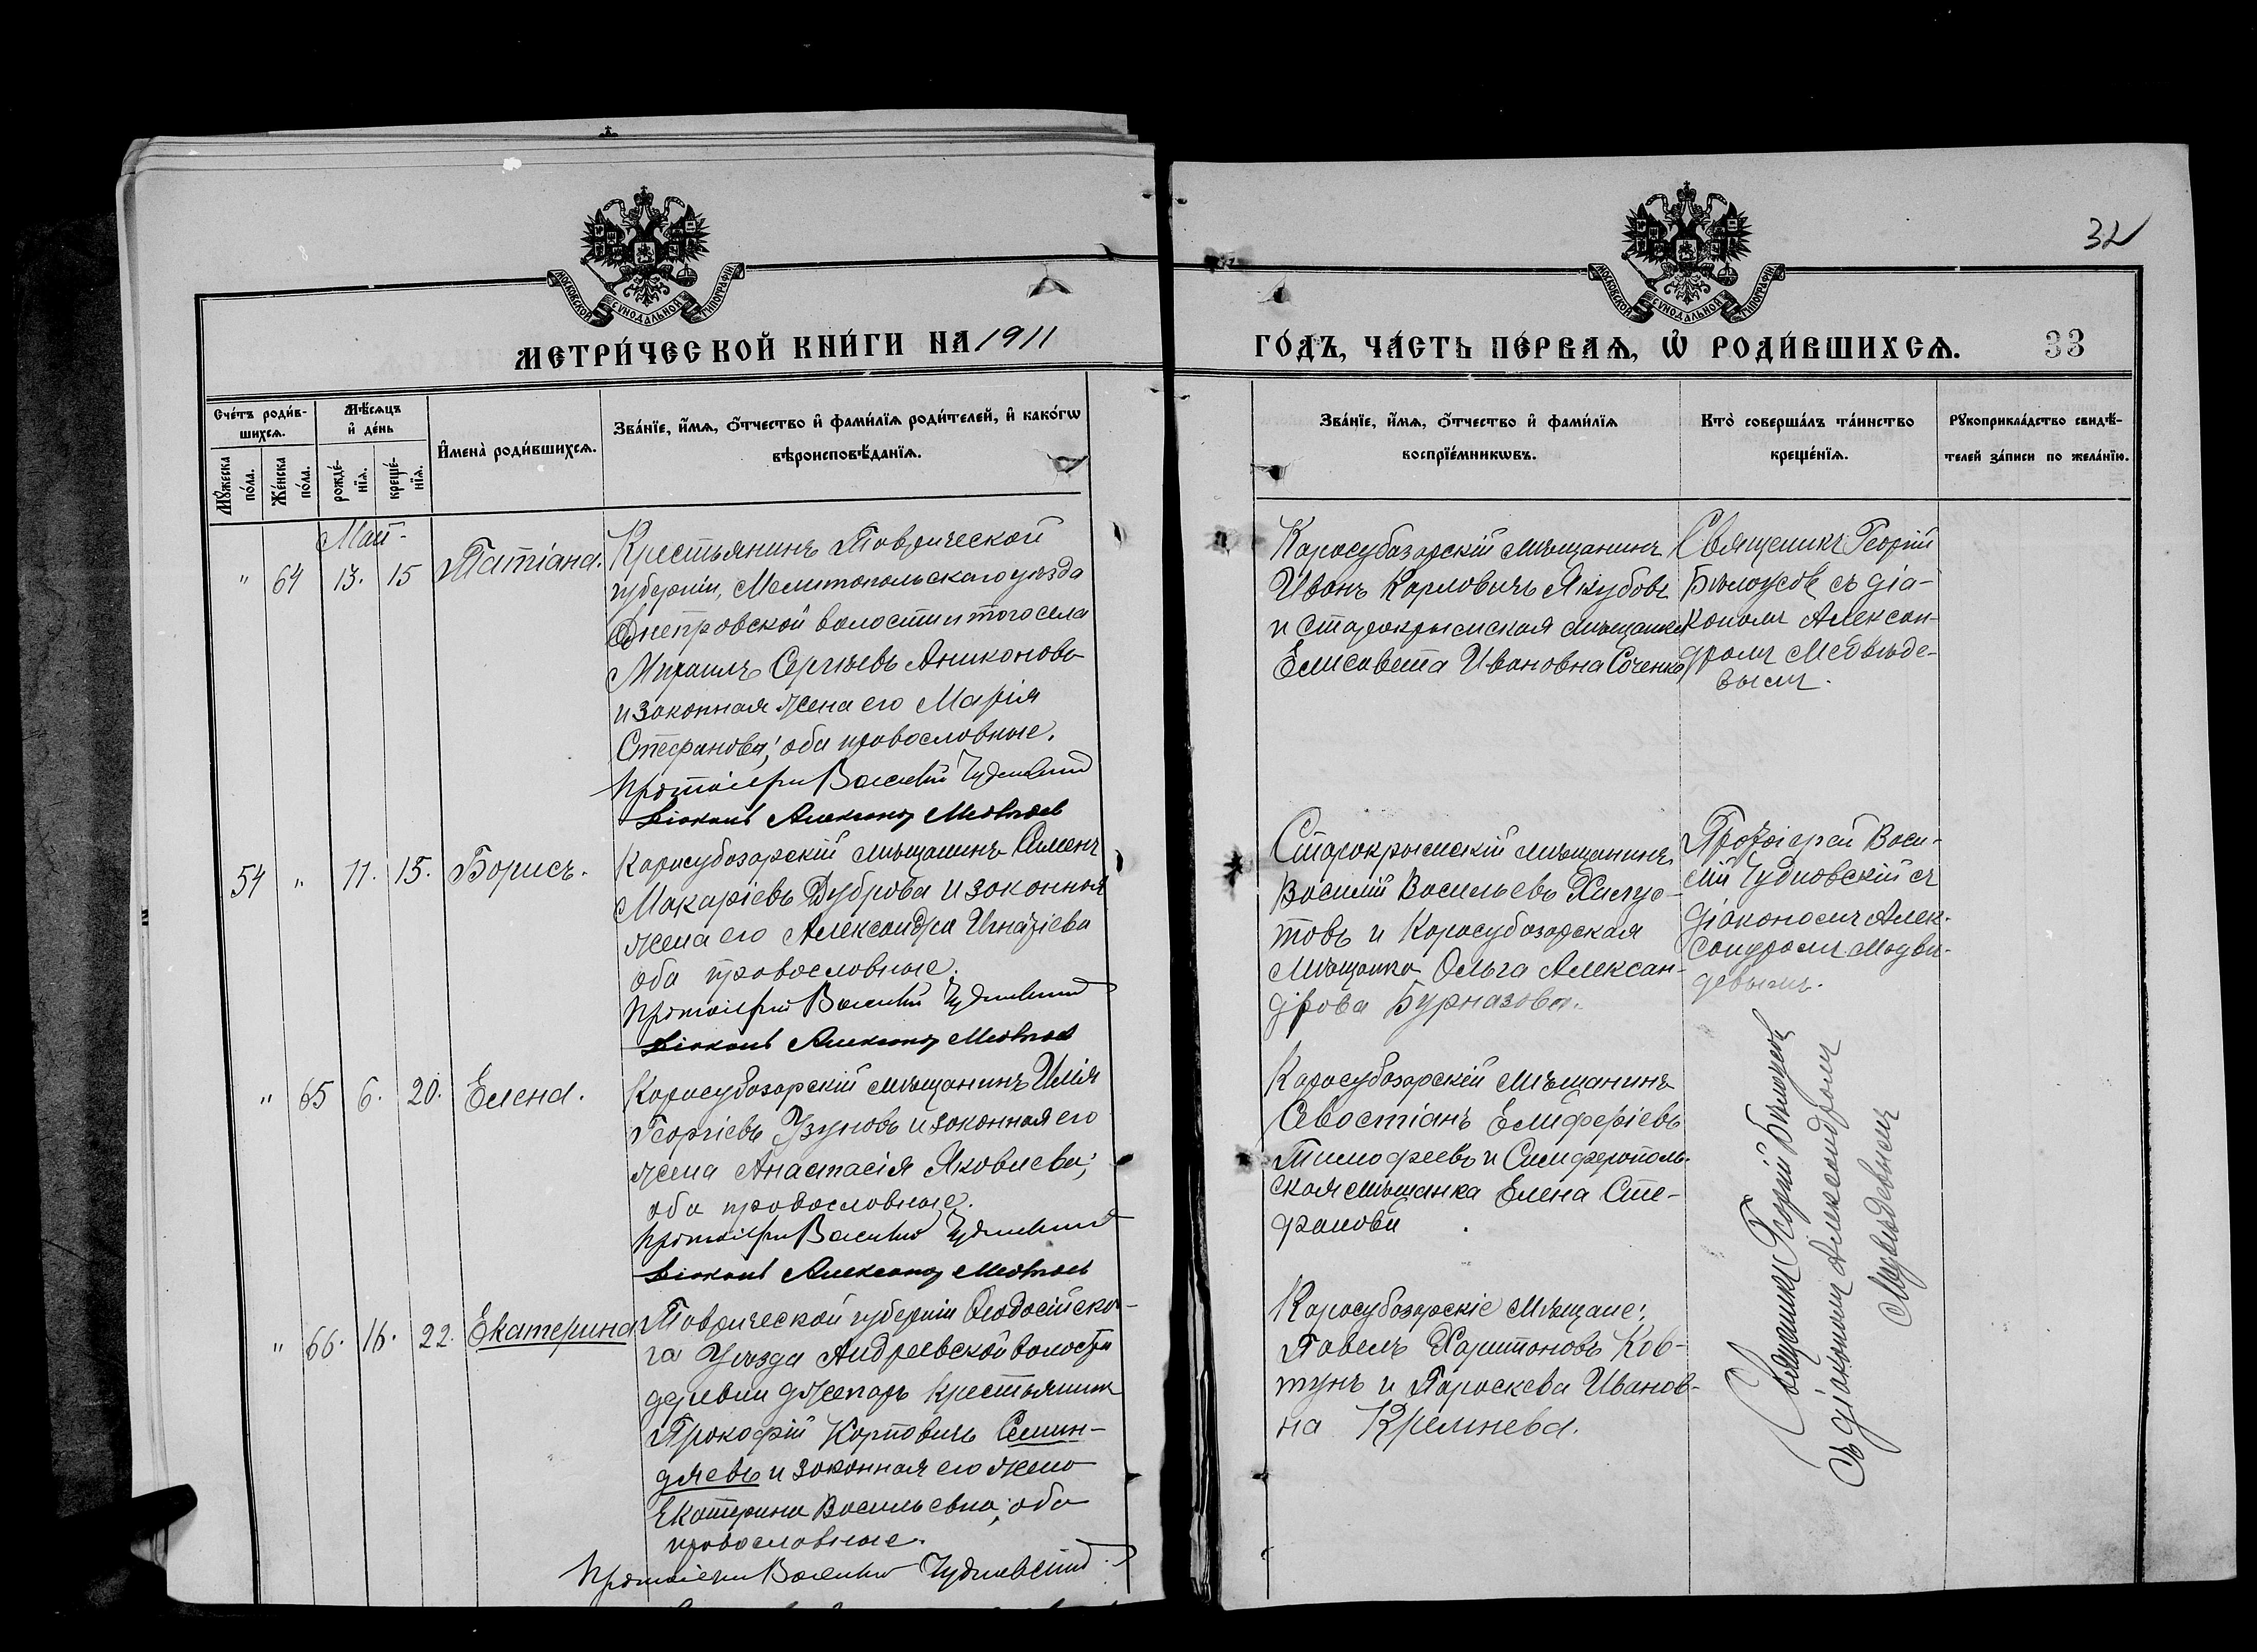 32
МОСКОВСКОЙ СѴНОДАЛЬНОЙ ТИПОГРАФІИ
МОСКОВСКОЙ СѴНОДАЛЬНОЙ ТИПОГРАФІИ
МЕТРИ́ЧЕСКОЙ КНИ́ГИ НА 1911
ГО́ДЪ, ЧА́СТЬ ПЕ́РВАѦ, Ѡ РОДИ́ВШИХСѦ.
33
Сче́тъ роди́в-
шихсѧ.
Мѣ́сѧцъ
и҆ де́нь
И҆мена̀ роди́вшихсѧ.
Зва́нїе, и҆́мѧ, о҆́тчество и҆ фами́лїѧ роди́телей, и҆ како́гѡ
вѣроисповѣ́данїѧ.
Мꙋ́жеска
по́ла.
Же́нска
по́ла.
рожде́-
нїѧ.
креще́-
нїѧ.
Зва́нїе, и҆́мѧ, о҆́тчество и҆ фами́лїѧ
воспрїе́мникѡвъ.
Кто̀ соверша́лъ та́инство
креще́нїѧ.
Рꙋкоприкла́дство свидѣ́-
телей за́писи по жела́нїю.
Май
" 64 13. 15 Татіана.
Крестьянинъ Таврической
губерніи, Мелитопольского уѣзда
Днепровской волости и того села
Михаилъ Сергѣевъ Аниконовъ
и законная жена его Марія
Стефанова; оба православные.
Протоіерей Василій Чудновскій
Діаконъ Александр Медвѣдев
Карасубазарскій мѣщанинъ
Иванъ Карловичъ Якубовъ
и Старокрымская мѣщанка
Елисавета Ивановна Соченко
Священникъ Георгій
Бѣлоусов съ діа-
кономъ Алексан-
дромъ Медвѣде-
вымъ.
54 " 11. 15. Борисъ.
Карасубазарскій мѣщанинъ Симеонъ
Макаріевъ Дуброва и законная
жена его Александра Игнатіева
оба православные.
Протоіерей Василій Чудновскій
Діаконъ Александр Медвѣдев
Старокрымскій мѣщанинъ
Василій Васильевъ
товъ и Карасубазарская
мѣщанка Ольга Алексан-
дрова Бурназова.
Протоіерей Васи-
лій Чудновскій съ
діакономъ Алек-
сандромъ Медвѣ-
девымъ.
" 65 6. 20. Елена.
Карасубазарскій мѣщанинъ Илія
Георгіевъ Узуновъ и законная его
жена Анастасія Яковлева;
оба православные.
Протоіерей Василій Чудновскій
Діаконъ Александр Медвѣдев
Карасубазарскій мѣщанинъ
Севостіанъ Елиферіевъ
Тимофеевъ и Симферополь-
ская мѣщанка Елена Сте-
фанова
" 66. 16. 22. Екатерина
Таврической губерніи Ѳеодосійско-
га Уѣзда Андреевской волости
деревни Джепаръ крестьянинъ
Прокофій Карповичъ Семин-
дяевъ и законная его жена
Екатерина Васильевна; оба
православные.
Протоіерей Василій Чудновскій
Карасубазарскіе мѣщане:
Павелъ Харитоновъ Ков-
тунъ и Параскева Иванов-
на Кремнева.
Священникъ Георгій Бѣлоусовъ
съ діакономъ Александромъ
Медвѣдевымъ